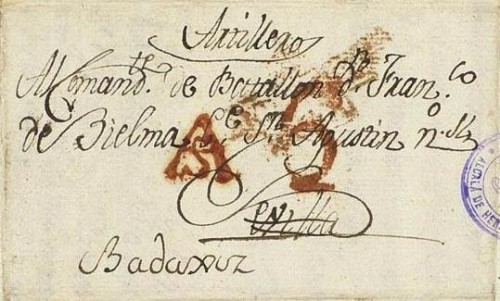 Artillero
Al Comand.te de Batallon D.n Fran.co
de Bielma C.e S.n Agustin n.o
Sevilla
Badaxoz
A
ALCALÁ DE HEN